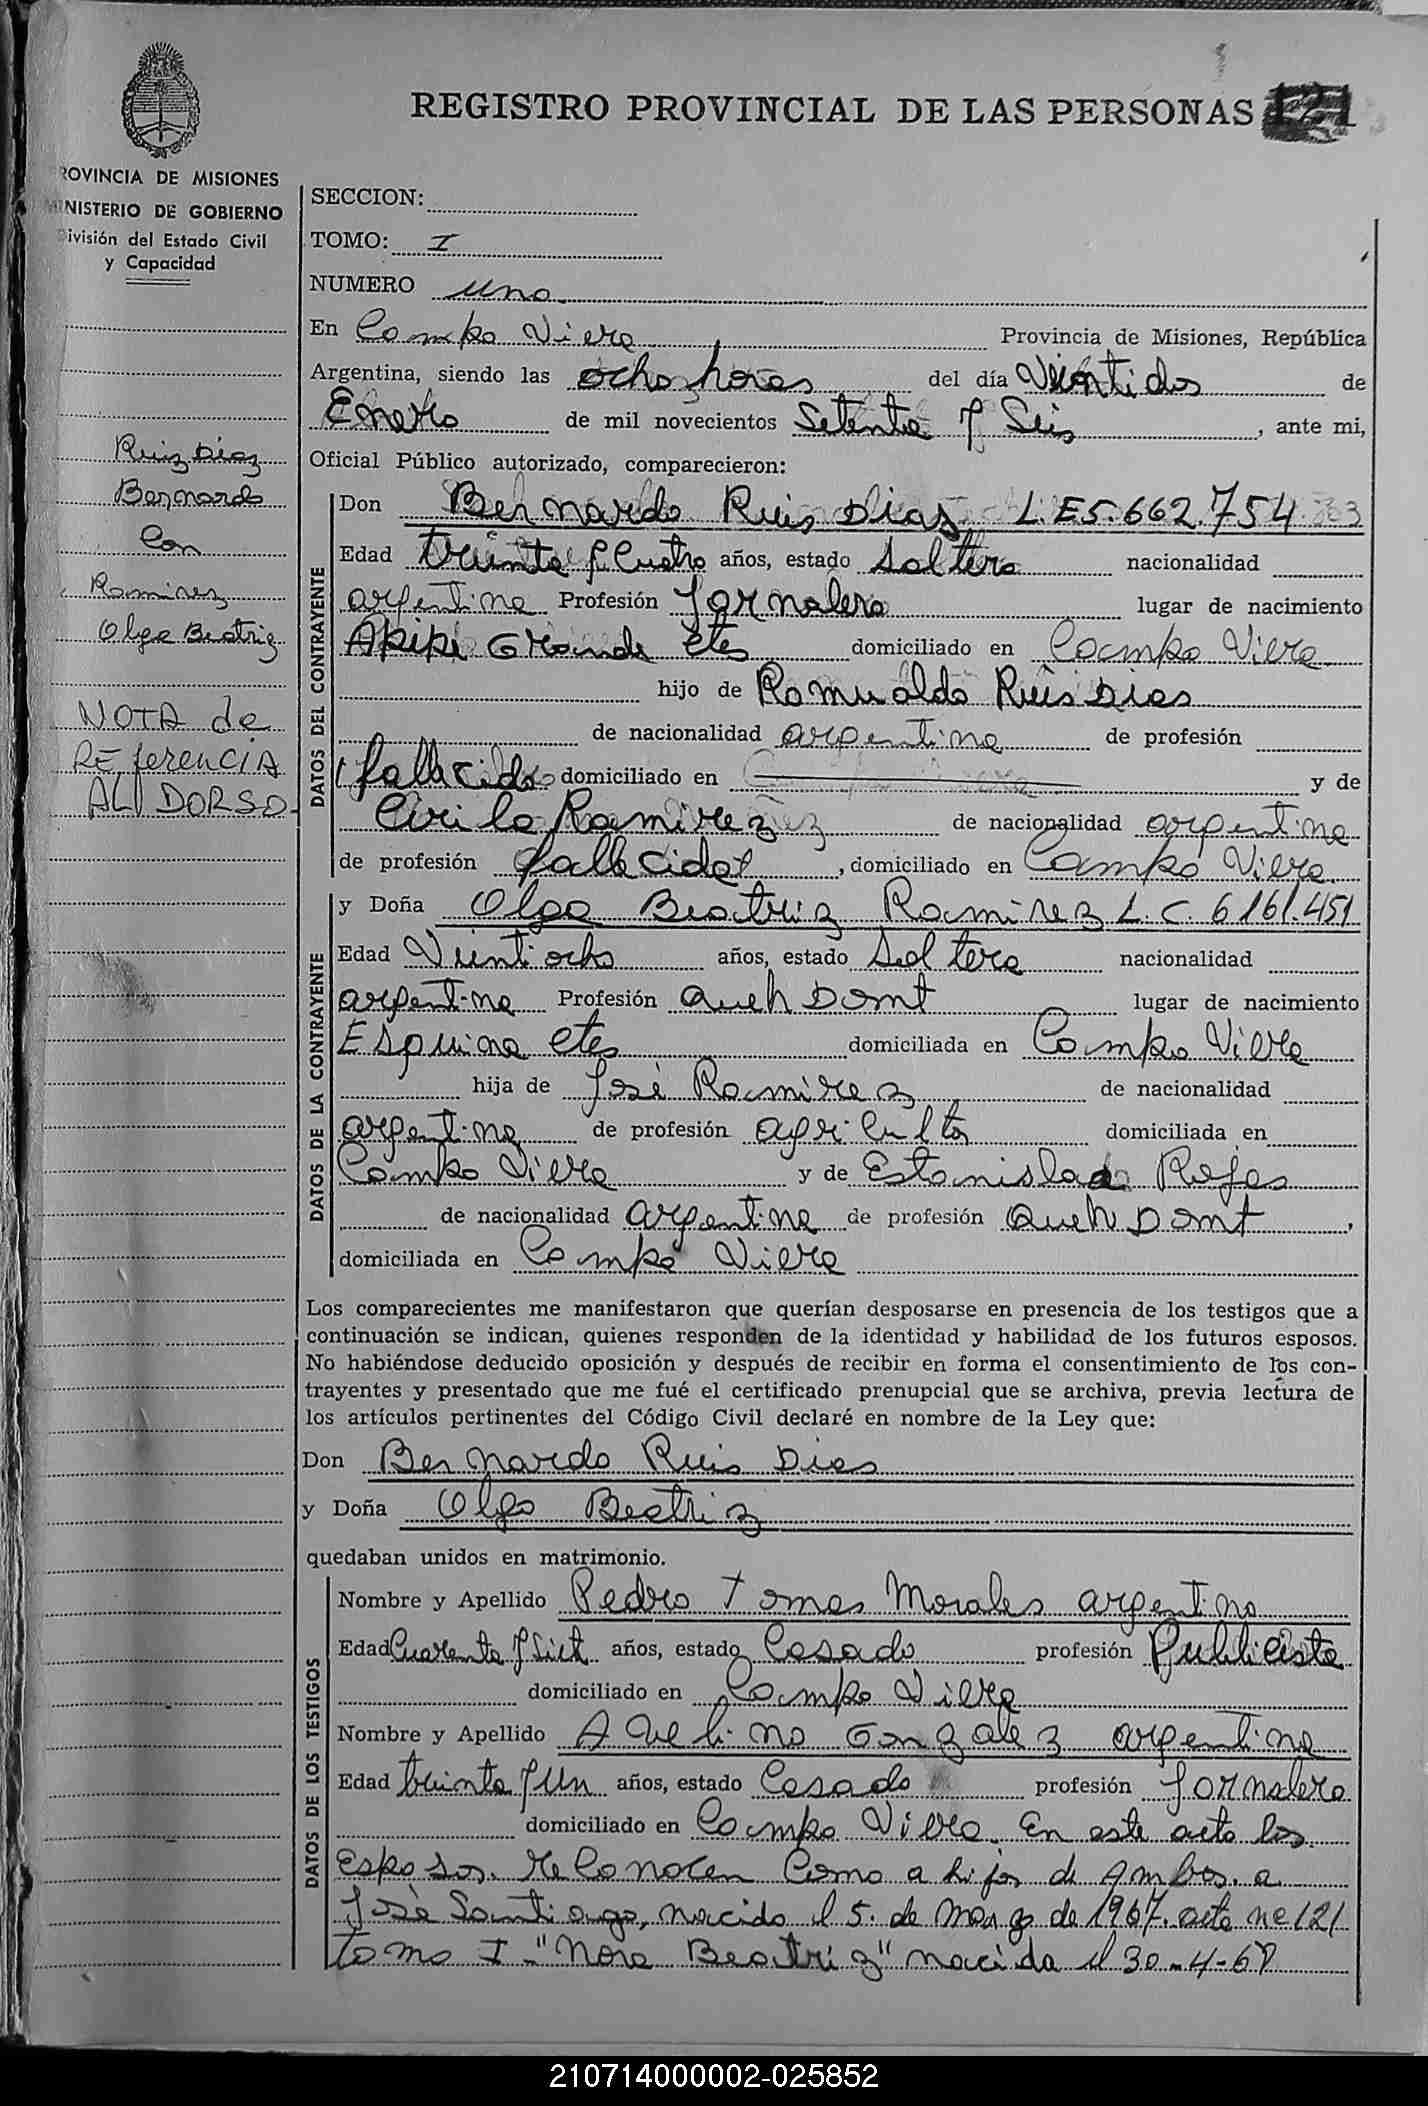 REGISTRO PROVINCIAL DE LAS PERSONAS
PROVINCIA DE MISIONES
MINISTERIO DE GOBIERNO
División del Estado Civil
y Capacidad
Ruiz Díaz
Bernardo
Con
Ramirez
Olga Beatriz
NOTA de
REferenciA
AL DORSO
SECCION:
TOMO: I
NUMERO uno
En Campo Viera Provincia de Misiones, República
Argentina, siendo las ocho horas del día Veintidos de
Enero de mil novecientos Setenta y Seis, ante mi,
Oficial Público autorizado, comparecieron:
DATOS DEL CONTRAYENTE
Don Bernardo Ruis Dias L.E 5.662.754
Edad treinta y Cuatro años, estado Soltero nacionalidad
argentina Profesión Jornalero lugar de nacimiento
Apipe Grande Ctes domiciliado en Campo Viera
hijo de Romualdo Ruis Dias
de nacionalidad argentina de profesión
fallecido domiciliado en y de
Cirila Ramirez de nacionalidad argentina
de profesión fallecida, domiciliado en Campo Viera
DATOS DE LA CONTRAYENTE
y Doña Olga Beatriz Ramirez L.C. 6.161.451
Edad Veintiocho años, estado Soltera nacionalidad
argentina Profesión Queh Domt lugar de nacimiento
Esquina Ctes domiciliada en Campo Viera
hija de José Ramirez de nacionalidad
argentina de profesión agricultor domiciliada en
Campo Viera y de Estanislada Rojas
de nacionalidad argentina de profesión Queh Domt,
domiciliada en Campo Viera
Los comparecientes me manifestaron que querían desposarse en presencia de los testigos que a
continuación se indican, quienes responden de la identidad y habilidad de los futuros esposos.
No habiéndose deducido oposición y después de recibir en forma el consentimiento de los con-
trayentes y presentado que me fué el certificado prenupcial que se archiva, previa lectura de
los artículos pertinentes del Código Civil declaré en nombre de la Ley que:
Don Bernardo Ruis Dias
y Doña Olga Beatriz
quedaban unidos en matrimonio.
DATOS DE LOS TESTIGOS
Nombre y Apellido Pedro Tomas Morales argentino
Edad Cuarenta y Siet años, estado Casado profesión Publicista
domiciliado en Campo Viera
Nombre y Apellido Avelino Gonzalez argentino
Edad treinta y Un años, estado Casado profesión Jornalero
domiciliado en Campo Viera. En este acto los
Esposos. reconocen Como a hijos de Ambos. a
José Santiago, nacido el 5. de Marzo de 1967. acta nº 121
tomo I - "Nora Beatriz" nacida el 30-4-69
210714000002-025852